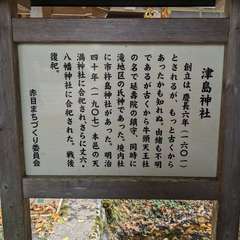 津島神社
創立は、慶長六年(一六〇一)
とされるが、もっと古くから
あったかも知れぬ。由緒も不明
であるが古くから牛頭天王社
の名で延寿院の鎮守、同時に
滝地区の氏神であった。境内社
に市杵島神社があった。明治
四十年(一九〇七)本邑の天
満神社に合祀され、さらに丈六・
八幡神社に合祀された。戦後
復祀。
赤目まちづくり委員会